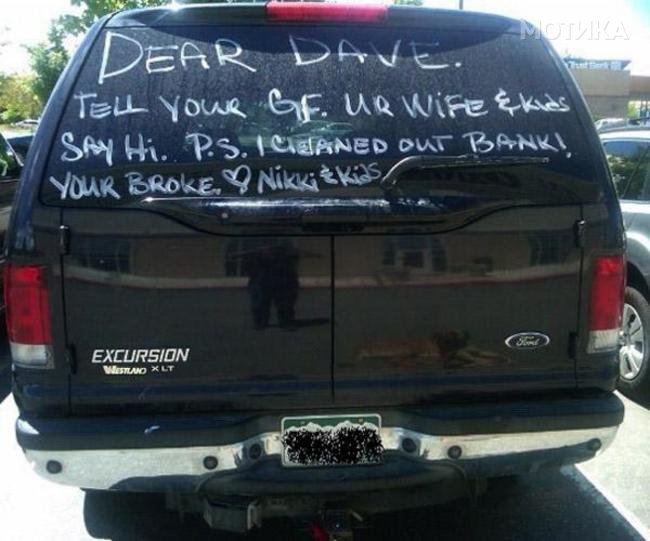 МОТИКА
DEAR DAVE.
Trust Bank
TELL YOUR GF. UR WIFE & KidS
SAY Hi. P.S. I CLEANED OUT BANK!
YOUR BROKE. ♡ Nikki & KidS
EXCURSION
Ford
WESTLAND XLT